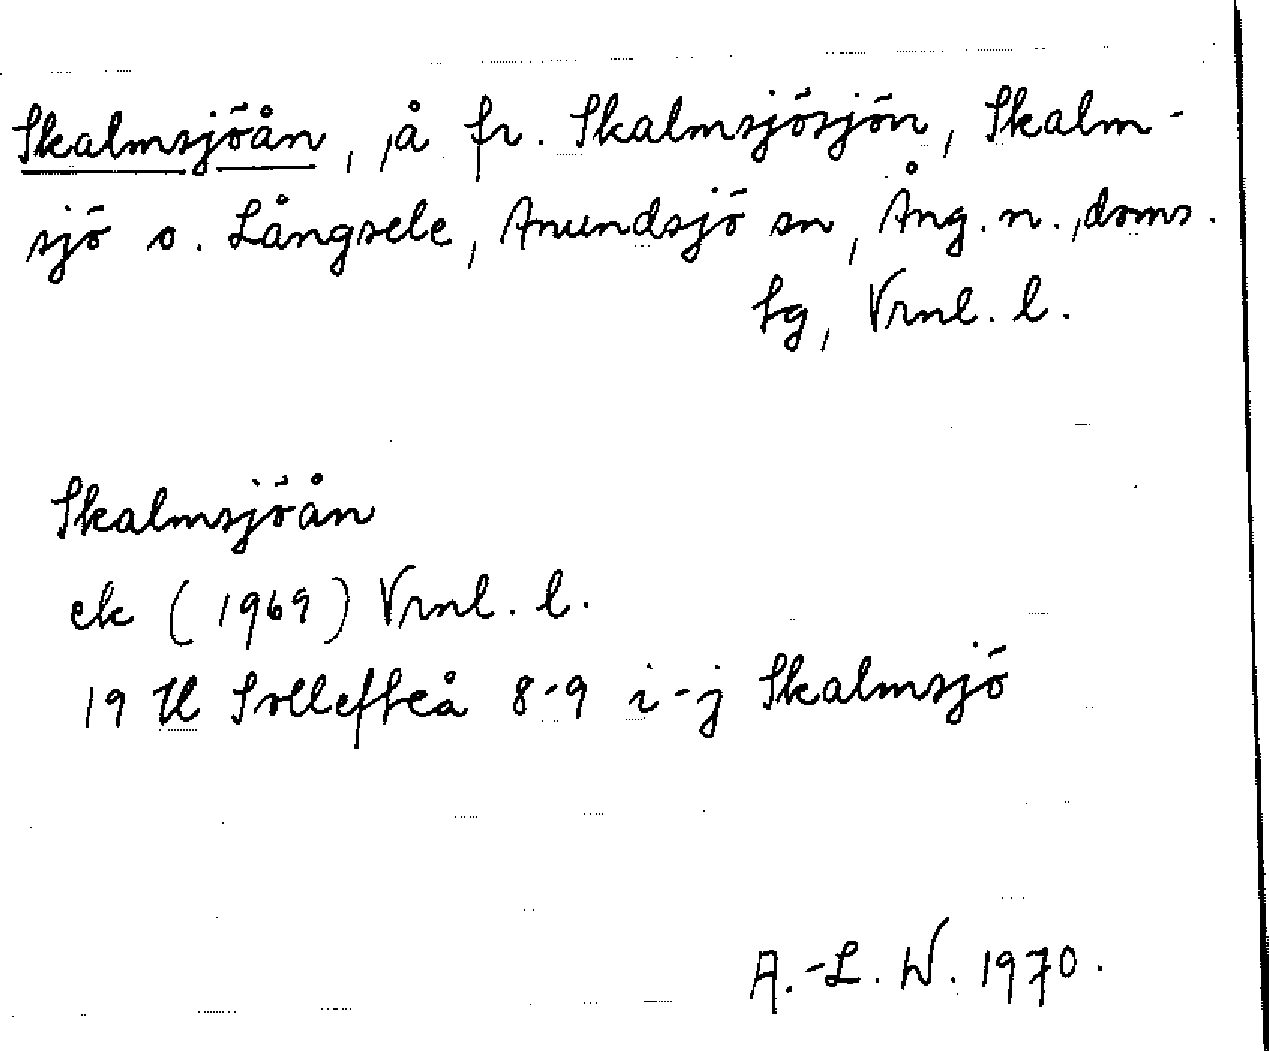 Skalmsjöån, å fr. Skalmsjösjön, Skalm-
sjö o. Långsele, Anundsjö sn, Ång. n. doms.
tg, Vrnl. l.
Skalmsjöån
ek (1969) Vrnl. l.
19 H Sollefteå 8-9 i-j Skalmsjö
A.-L. W. 1970.